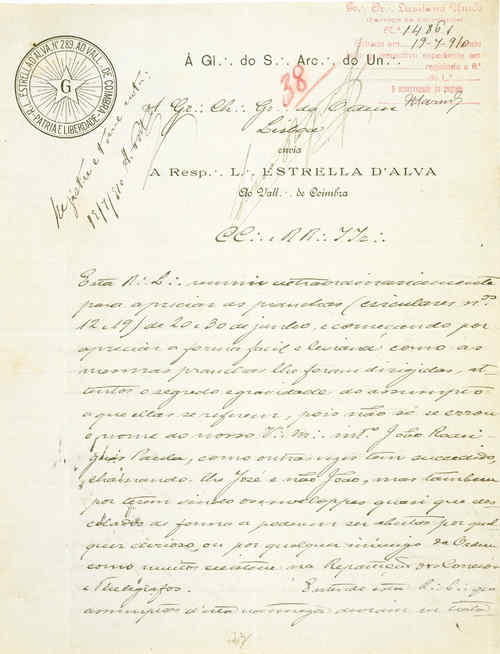 Gr.·. Or.·. Lusitano Unido
N.º 14861
Entrado em 19-7-910
registado a fl.
do L.º
R.·. ESTRELLA D'ALVA, N.º 289, AO VALL.·. DE COIMBRA
PATRIA E LIBERDADE
G
Á Gl.·. do S.·. Arc.·. do Un.·.
38
A Gr.·. Ch.·. G.·. da Ordem
Lisboa
envia
A Resp.·. L.·. ESTRELLA D'ALVA
Ao Vall.·. de Coimbra
13/7/910
CC.·. e RR.·. IIr.·.
Esta R.·. L.·. reuniu extraordinariamente
para apreciar as pranchas (circulares nºs
12 e 19) de 20 e 30 de junho, e começando por
apreciar a forma facil e leviana como as
mesmas pranchas lhe foram dirigidas, at-
tentos o segredo e gravidade do assumpto
a que ellas se referem, pois não só se errou
o nome do nosso V.·. M.·. intº João Rodri-
gues Paula, como outras vezes tem succedido,
chamando-lhe José e não João, mas tambem
por terem vindo os enveloppes quasi que des-
collados de forma a poderem ser abertos por qual-
quer curioso, ou por qualquer inimigo da Ordem
como muitos existem na Repartição dos Correios
e Telegrafos. Entende esta R.·. L.·. que
assumptos d'esta natureza devem ser trata-